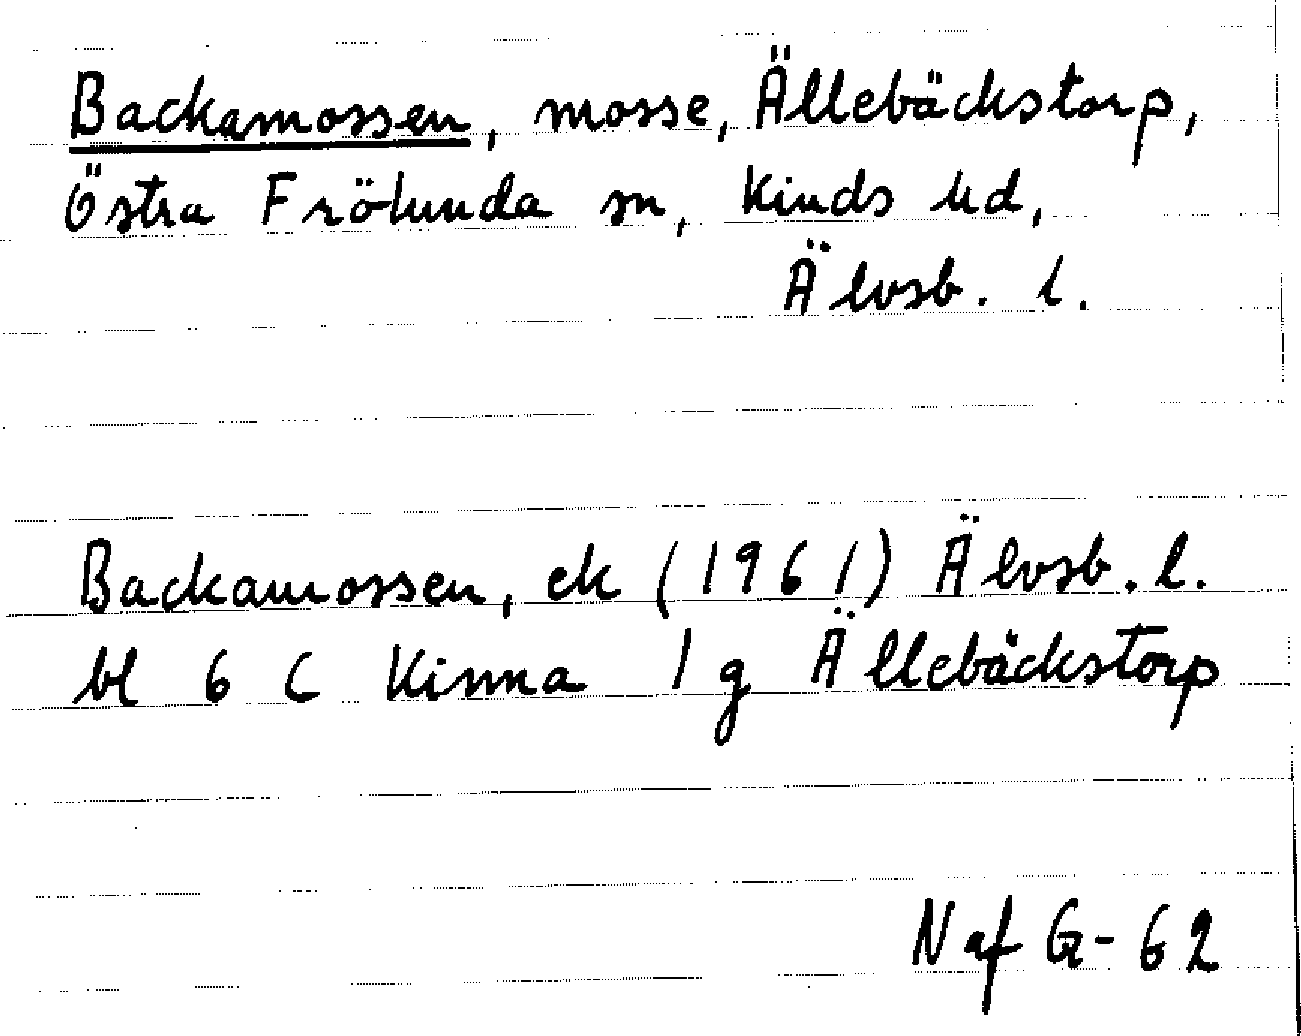 Backamossen, mosse, Ällebäckstorp,
Östra Frölunda sn, Kinds hd,
Älvsb. l.
Backamossen, ek (1961) Älvsb. l.
bl 6 C Kinna 1 g Ällebäckstorp
N af G-62